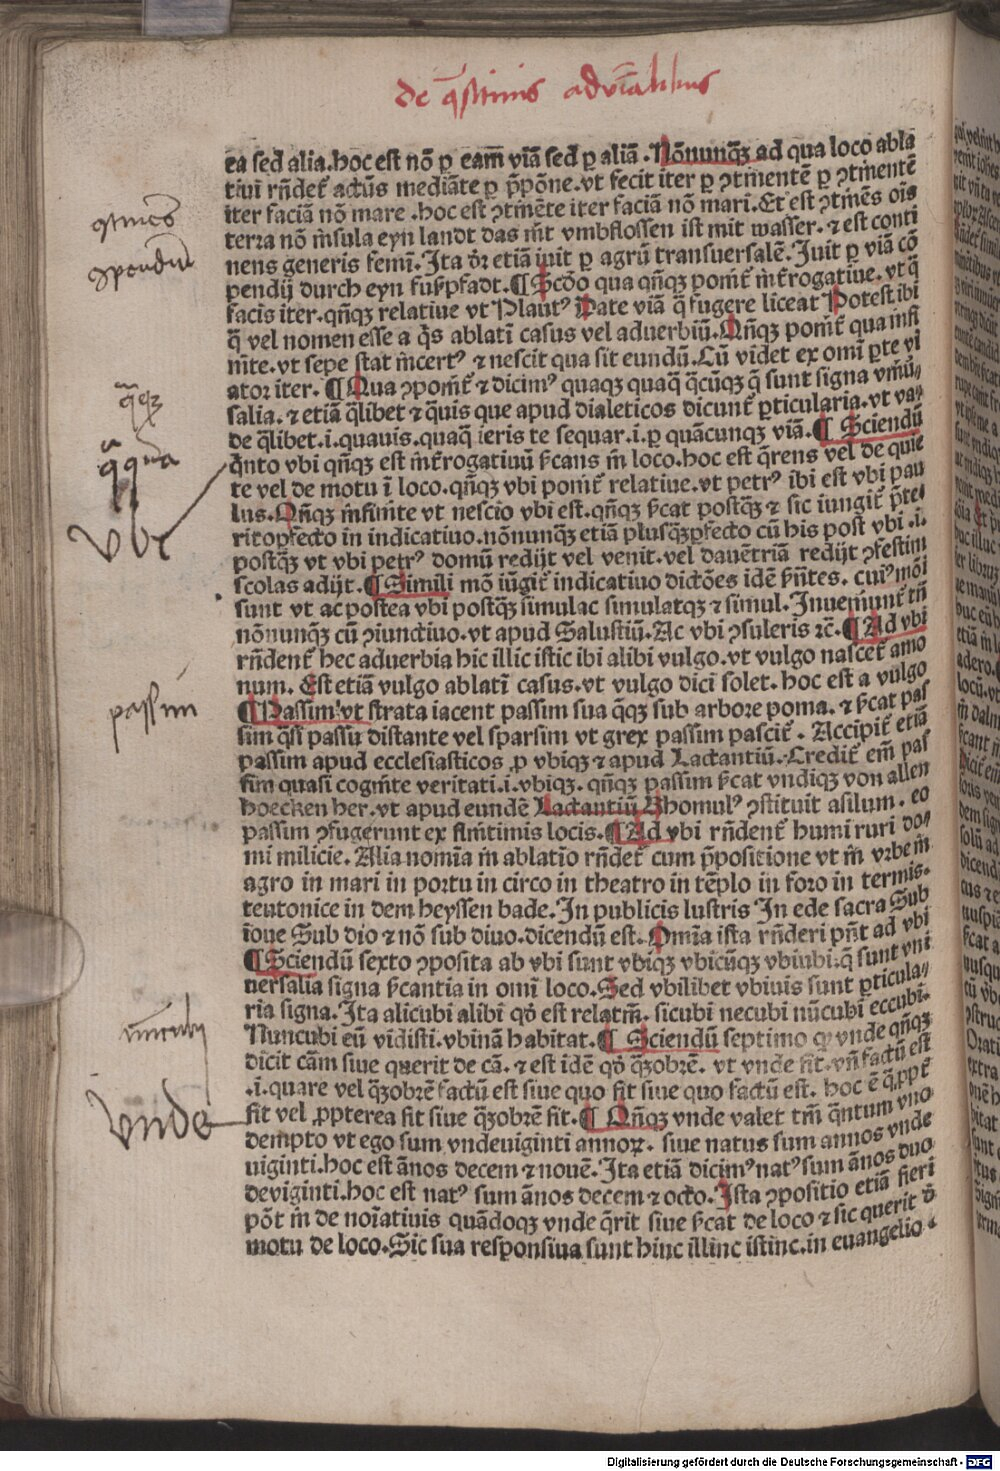 de q̄stiuis aduerbialibus
ea sed alia.hoc est nō ꝑ eam̄ viā sed ꝑ aliā. Nōnunqꝫ ad qua loco abla
tiui rn̄det̄ actūs mediāte ꝑ p̄pōne.vt fecit iter ꝑ ↄtmentē ꝑ ↄtm̄entē
iter faciā nō mare .hoc est ↄtm̄ēte iter faciā nō mari.Et est ↄtm̄ēs oīs
terra nō īnsula eyn landt das mit vmbflossen ist mit wasser. ⁊ est conti
nens generis femī.Ita dr̄ etiā iuit ꝑ agrū transuersalē.Iuit ꝑ viā cō
pendij durch eyn fußpfadt.¶ Scdo qua qn̄qꝫ pomt̄ īnt̄rogatiue. vt q̄
facis iter.qn̄qꝫ relatiue vt Plautꝰ Pate viā q̄ fugere liceat Potest ibi
q̄ vel nomen esse a q̄s ablatī casus vel aduerbiū.Qn̄qꝫ pomt̄ qua infi
nite.vt sepe stat incertꝰ ⁊ nescit qua sit eundū.Cū videt ex omī ꝑte vi
ator iter.¶ Qua ↄpomt̄ ⁊ dicimꝰ quaqꝫ quaq̄ q̄cūqꝫ q̄ sunt signa vniū
salia.⁊ etiā q̄libet ⁊ q̄uis que apud dialeticos dicunt̄ ꝑticularia.vt va
de q̄libet.i.quauis.quaq̄ ieris te sequar.i.ꝑ quācunqꝫ viā.¶ Sciendū
q̄nto vbi qn̄qꝫ est īnt̄rogatiuū s̄cans in loco.hoc est q̄rens vel de quie
te vel de motu ī loco.qn̄qꝫ vbi pomt̄ relatiue.vt petrꝰ ibi est vbi pau
lus.Qn̄qꝫ infinite vt nescio vbi est.qn̄qꝫ s̄cat postqꝫ ⁊ sic iungit̄ p̄te
rito ꝑfecto in indicatiuo.nōnunqꝫ etiā plusqꝫꝑfecto cū his post vbi .i.
postqꝫ vt vbi petrꝰ domū redijt vel venit.vel dauētriā redijt ↄfestim
scolas adijt.¶ Simili mō iūgit̄ indicatiuo dictōes idē s̄ntes. cuiꝰmōi
sunt vt ac postea vbi postqꝫ simulac simulatqꝫ ⁊ simul.Inueniunt̄ tn̄
nōnunqꝫ cū ↄiunctiuo.vt apud Salustiū.Ac vbi ↄsuleris ⁊c̄.¶ Ad vbi
rn̄dent̄ hec aduerbia hic illic istic ibi alibi vulgo.vt vulgo nascet̄ amo
num. Est etiā vulgo ablatī casus.vt vulgo dici solet. hoc est a vulgo
¶ Passim vt strata iacent passim sua q̄qꝫ sub arbore poma. ⁊ s̄cat pas
sim q̄si passu distante vel sparsim vt grex passim pascit̄. Accipit̄ etiā
passim apud ecclesiasticos ꝓ vbiqꝫ ⁊ apud Lactantiū.Credit̄ em̄ pas
sim quasi cognite veritati.i.vbiqꝫ. qn̄qꝫ passim s̄cat vndiqꝫ von allen
hoecken her.vt apud eundē Lactantiū Rhomulꝰ ↄstituit asilum. eo
passim ↄfugerunt ex finitimis locis.¶ Ad vbi rn̄dent̄ humi ruri do
mi milicie. Alia nomīa in ablatīo rn̄det̄ cum p̄positione vt in vrbe in
agro in mari in portu in circo in theatro in tēplo in foro in termis.
teutonice in dem heyssen bade.In publicis lustris In ede sacra Sub
ioue Sub dio ⁊ nō sub diuo.dicendū est. Omīa ista rn̄deri pn̄t ad vbi
¶ Sciendū sexto ↄposita ab vbi sunt vbiqꝫ vbicūqꝫ vbiubi.q̄ sunt vni
uersalia signa s̄cantia in omi loco. Sed vbilibet vbiuis sunt ꝑticula
ria signa.Ita alicubi alibi qd̄ est relatm̄. sicubi necubi nūcubi eccubi.
Nuncubi eū vidisti.vbinā habitat.¶ Sciendū septimo qꝫ vnde qn̄qꝫ
dicit cām siue querit de cā. ⁊ est idē qd̄ q̄ꝫobrē. vt vnde sit. vn̄ factū est
.i.quare vel q̄ꝫobrē factū est siue quo fit siue quo factū est. hoc ē q̄ꝓpt̄
fit vel ꝓpterea fit siue q̄ꝫobrē fit.¶ Qn̄qꝫ vnde valet tm̄ q̄ntum vno
dempto vt ego sum vndeuiginti annoꝝ. siue natus sum annos vnde
uiginti.hoc est ānos decem ⁊ nouē.Ita etiā dicimꝰ natꝰ sum ānos duo
deviginti.hoc est natꝰ sum ānos decem ⁊ octo.Ista ↄpositio etiā fieri
pōt in de noīatiuis quādoqꝫ vnde q̄rit siue s̄cat de loco ⁊ sic querit d̄
motu de loco.Sic sua responsiua sunt hinc illinc istinc.in euangelio
ↄtinēs
ↄpendiū
q̄qꝫ
q̄quā
Vbi
passim
nūcubi
Vnde
Digitalisierung gefördert durch die Deutsche Forschungsgemeinschaft - DFG